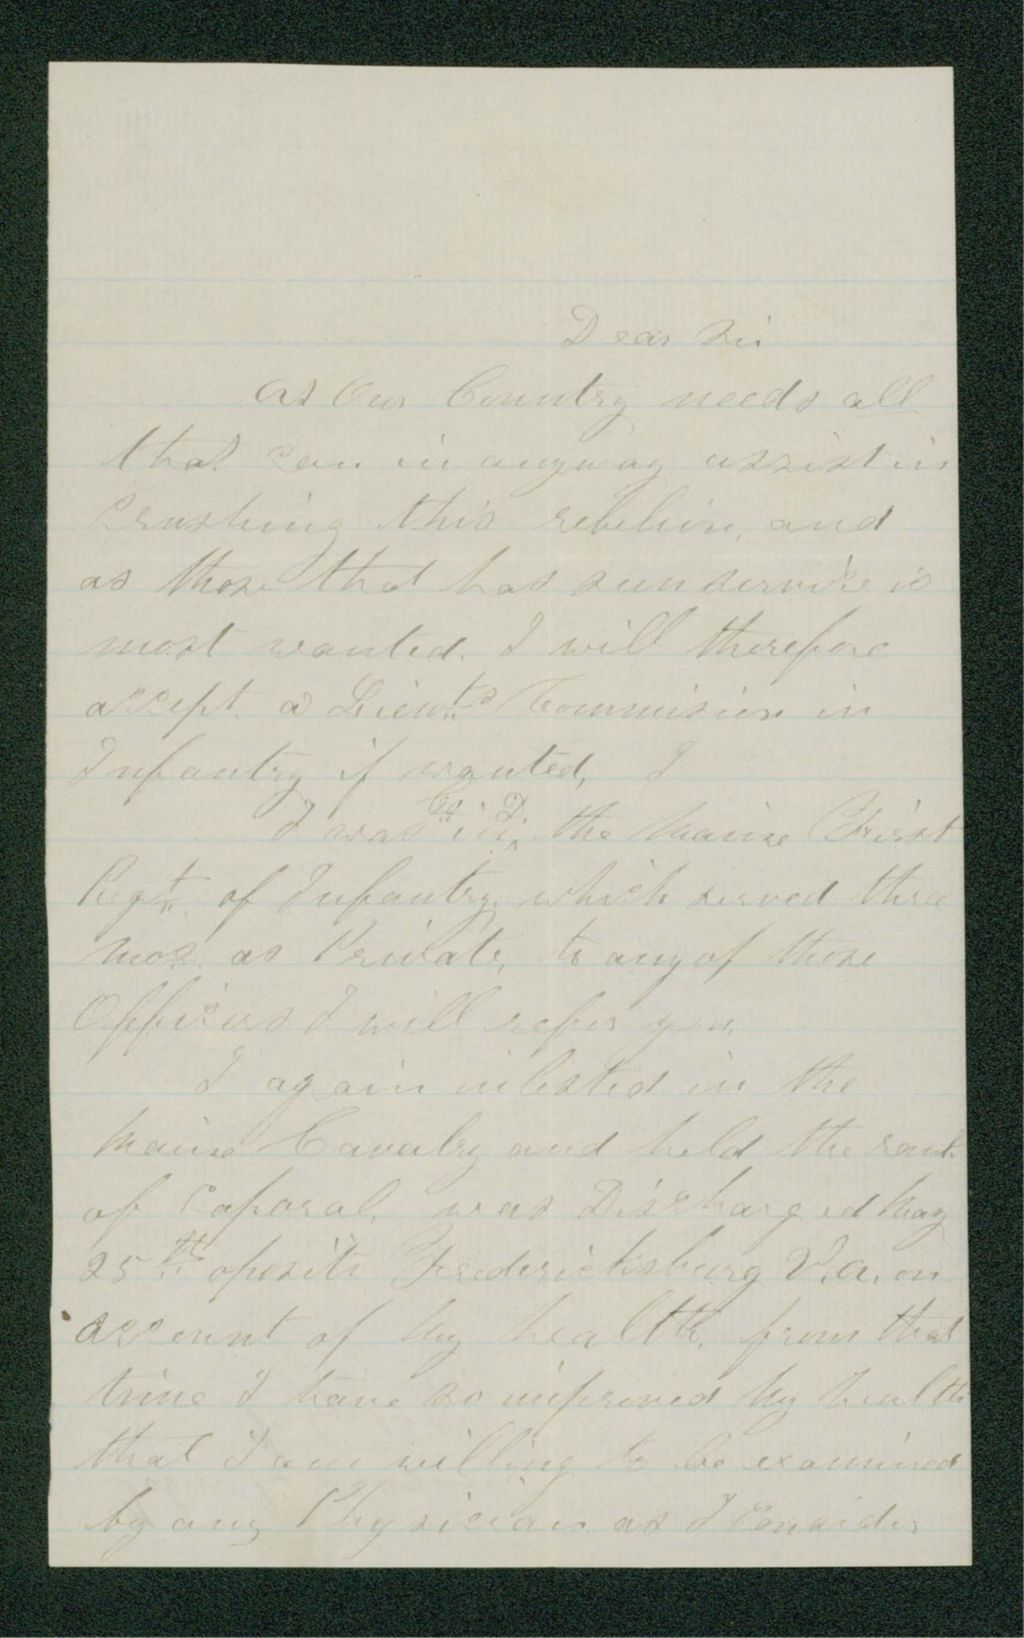 Dear Sir
As Our Country needs all
that can in anyway assist in
Crushing this rebelion, and
as those that has seen servise is
most wanted. I will therefore
accept a Lieuts Commision in
Infantry if wanted, I
I was in Co D. the Maine First
Regt. of Infantry, which served three
mos. as Private, to any of those
Officers I will refer you,
I again inlisted in the
Maine Cavalry and held the rank
of Caporal, was Discharged May
25th oposite Fredericksburg V.a. on
account of my health, from that
time I have so improved my health
that I am willing to be examined
by any Physician as I Consider